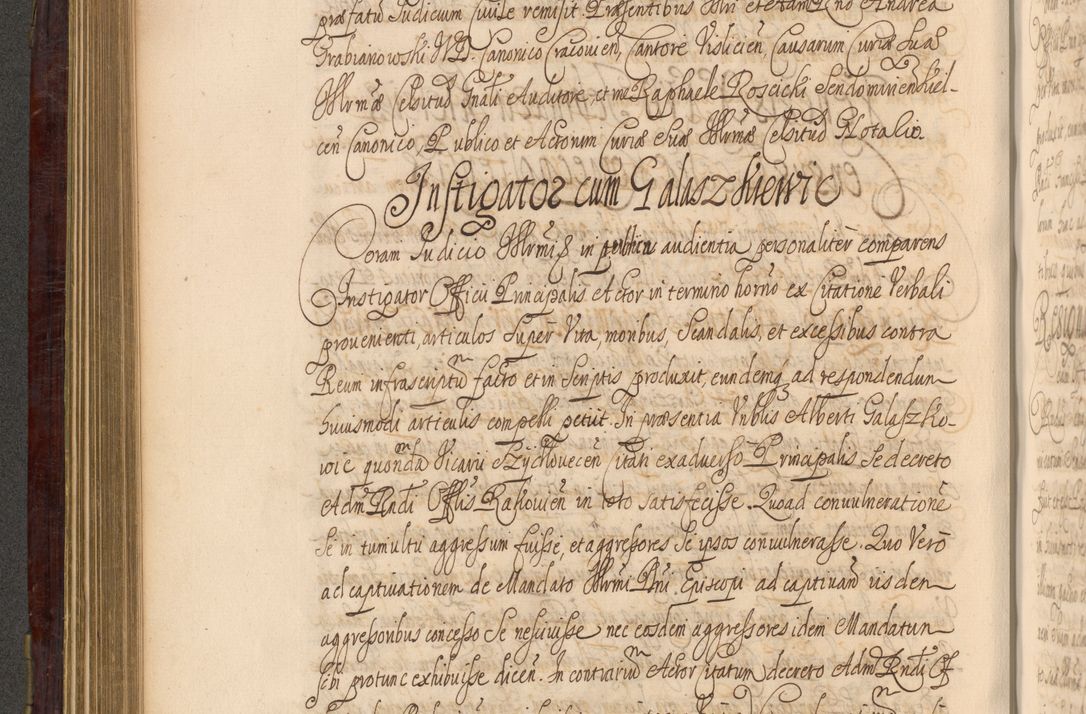 præfatũ Iudicium Civile remisit. Præsentibus Illri et Adm Rño Andrea
Grabianowski V.D. Canonico Cracovien, Cantore Vislicien, Causarum Curiæ Suæ
Illrmæ Celsitud Gnali Auditore, et me Raphaele Roscicki Sendomirien Kiel-
cen Canonico, Publico et Actorum Curiæ Suæ Illrmæ Celsitud Notalio
Instigator cum Galaszkiewic
Coram Iudicio Illrmi in publica audientia personaliter comparens
Instigator Officii Principalis Actor in termino horno ex Citatione Verbali
provenienti, articulos super Vita, moribus, Scandalis, et excessibus contra
Reum infrascriptũ facto et in Scriptis produxit, eundemq ad respondendum
huiusmodi articulis compelli petiit. In præsentia Vnblis Alberti Galaszko-
wic quonda Vicarii Zychovecen Citati ex adverso Principalis Se decreto
Adm Rndi Offlis Rakovien in toto satisfecisse. Quoad convulneratione
Se in tumultu aggressum fuisse, et aggressores Se ipsos convulnerasse. Quo Vero
ad captivationem de Mandato Illrmi Dni Episcopi ad captivand iisdem
aggressoribus concesso Se nescivisse nec eosdem aggressores idem Mandatum
sibi pro tunc exhibuisse dicen. In contrariũ Actor citatum decreto Adm Rndi Of